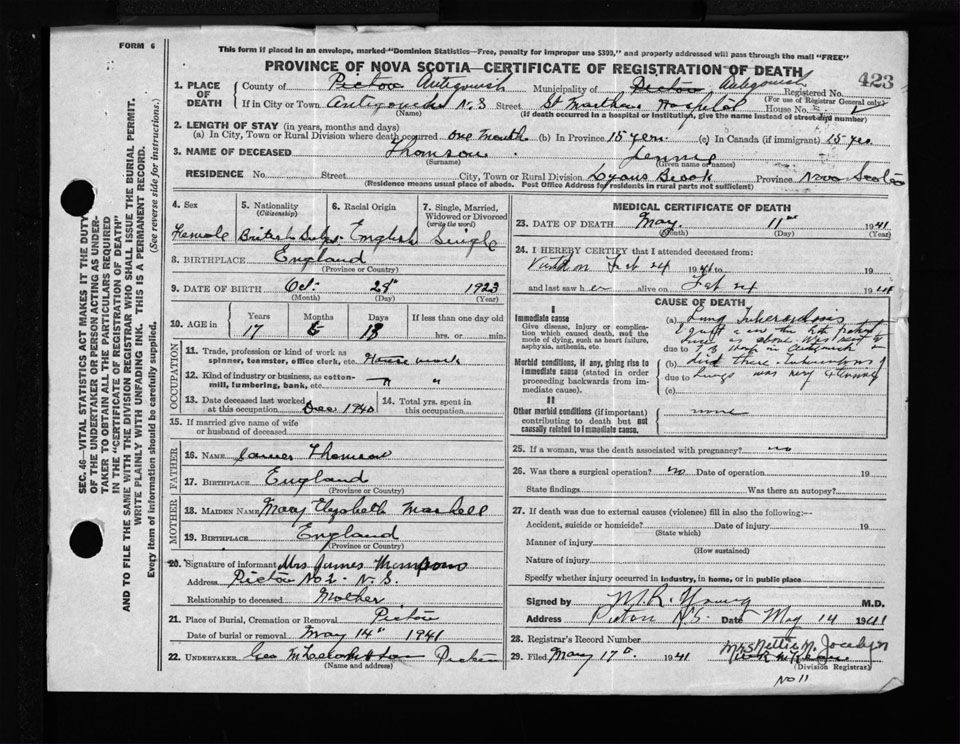 FORM 6
This form if placed in an envelope, marked "Dominion Statistics—Free, penalty for improper use $300," and properly addressed will pass through the mail "FREE"
PROVINCE OF NOVA SCOTIA—CERTIFICATE OF REGISTRATION OF DEATH
423
1. PLACE OF DEATH
County of Pictou Antigonish Municipality of Pictou Antigonish Registered No.
(For use of Registrar General only)
If in City or Town Antigonish N.S Street St Marthas Hospital House No.
(Name) (If death occurred in a hospital or institution, give the name instead of street and number)
2. LENGTH OF STAY (in years, months and days)
(a) In City, Town or Rural Division where death occurred one month (b) In Province 15 yrs. (c) In Canada (if immigrant) 15 yrs
3. NAME OF DECEASED Thomson Jennie
(Surname) (Given name or names)
RESIDENCE No. Street City, Town or Rural Division Lyons Brook Province Nova Scotia
(Residence means usual place of abode. Post Office Address for residents in rural parts not sufficient)
4. Sex 5. Nationality (Citizenship) 6. Racial Origin 7. Single, Married, Widowed or Divorced (write the word)
Female British Subj. English Single
8. BIRTHPLACE England
(Province or Country)
9. DATE OF BIRTH Oct. 28th 1923
(Month) (Day) (Year)
10. AGE in Years Months Days If less than one day old
17 6 13 hrs. or min.
OCCUPATION
11. Trade, profession or kind of work as spinner, teamster, office clerk, etc. House work
12. Kind of industry or business, as cotton-mill, lumbering, bank, etc. " "
13. Date deceased last worked at this occupation Dec 1940 14. Total yrs. spent in this occupation
15. If married give name of wife or husband of deceased
FATHER
16. NAME James Thomson
17. BIRTHPLACE England
(Province or Country)
MOTHER
18. MAIDEN NAME Mary Elizabeth
19. BIRTHPLACE England
(Province or Country)
20. Signature of informant Mrs James Thompson
Address Pictou No 2 - N.S.
Relationship to deceased Mother
21. Place of Burial, Cremation or Removal Pictou
Date of burial or removal May 14th 1941
22. UNDERTAKER Geo Pictou
(Name and address)
MEDICAL CERTIFICATE OF DEATH
23. DATE OF DEATH May 11th 1941
(Month) (Day) (Year)
24. I HEREBY CERTIFY that I attended deceased from:
Feb 24 1941 to 19
and last saw her alive on Feb 24 1941
CAUSE OF DEATH
I
Immediate cause
Give disease, injury or complication which caused death, not the mode of dying, such as heart failure, asphyxia, asthenia, etc.
Morbid conditions, if any, giving rise to immediate cause (stated in order proceeding backwards from immediate cause).
II
Other morbid conditions (if important) contributing to death but not causally related to immediate cause.
(a) Lung Tuberculosis
due to
(b) died there. Tuberculosis of
due to Lungs was very
(c)
none
25. If a woman, was the death associated with pregnancy? no
26. Was there a surgical operation? no Date of operation 19
State findings Was there an autopsy?
27. If death was due to external causes (violence) fill in also the following:—
Accident, suicide or homicide? Date of injury 19
(State which)
Manner of injury
(How sustained)
Nature of injury
Specify whether injury occurred in industry, in home, or in public place
Signed by M.R. Young M.D.
Address Pictou N.S. Date May 14 1941
28. Registrar's Record Number
Mrs Nettie M. Jocelyn
29. Filed May 17th 1941
(Division Registrar)
No 11
SEC. 46—VITAL STATISTICS ACT MAKES IT THE DUTY
OF THE UNDERTAKER OR PERSON ACTING AS UNDER-
TAKER TO OBTAIN ALL THE PARTICULARS REQUIRED
IN THE "CERTIFICATE OF REGISTRATION OF DEATH"
AND TO FILE THE SAME WITH THE DIVISION REGISTRAR WHO SHALL ISSUE THE BURIAL PERMIT.
WRITE PLAINLY WITH UNFADING INK. THIS IS A PERMANENT RECORD.
Every item of information should be carefully supplied. (See reverse side for instructions.)